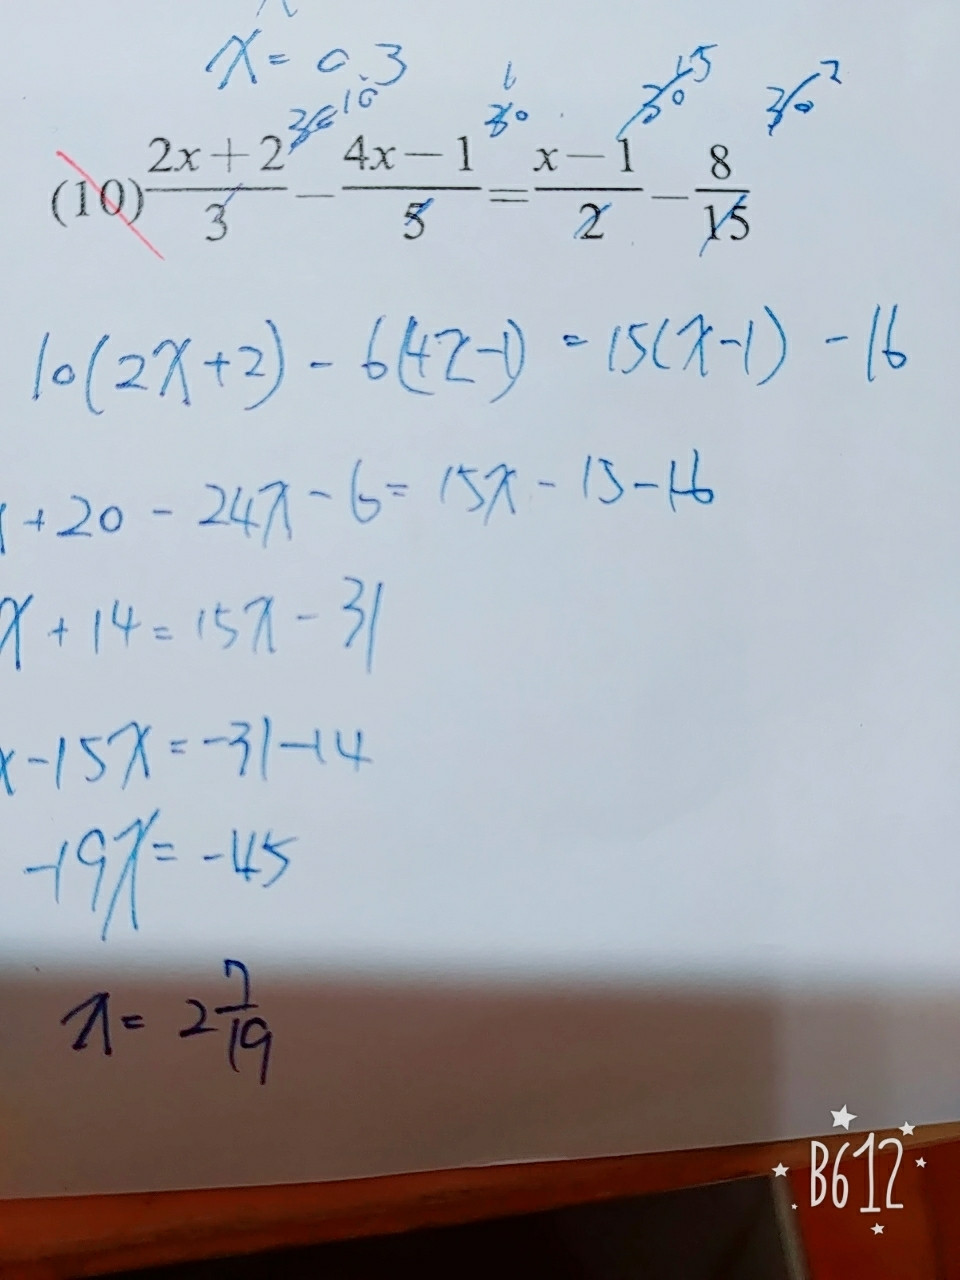 x = 0.3
30 10 30 6 30 15 30 2
(10) \frac{2x+2}{3} - \frac{4x-1}{5} = \frac{x-1}{2} - \frac{8}{15}
10(2x+2) - 6(4x-1) = 15(x-1) - 16
+20 - 24x - 6 = 15x - 15 - 16
x + 14 = 15x - 31
x - 15x = -31 - 14
-19x = -45
x = 2\frac{7}{19}
B612